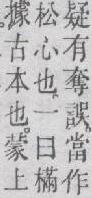 疑有奪誤、當作
松心也、一曰樠
據古本也。蒙上